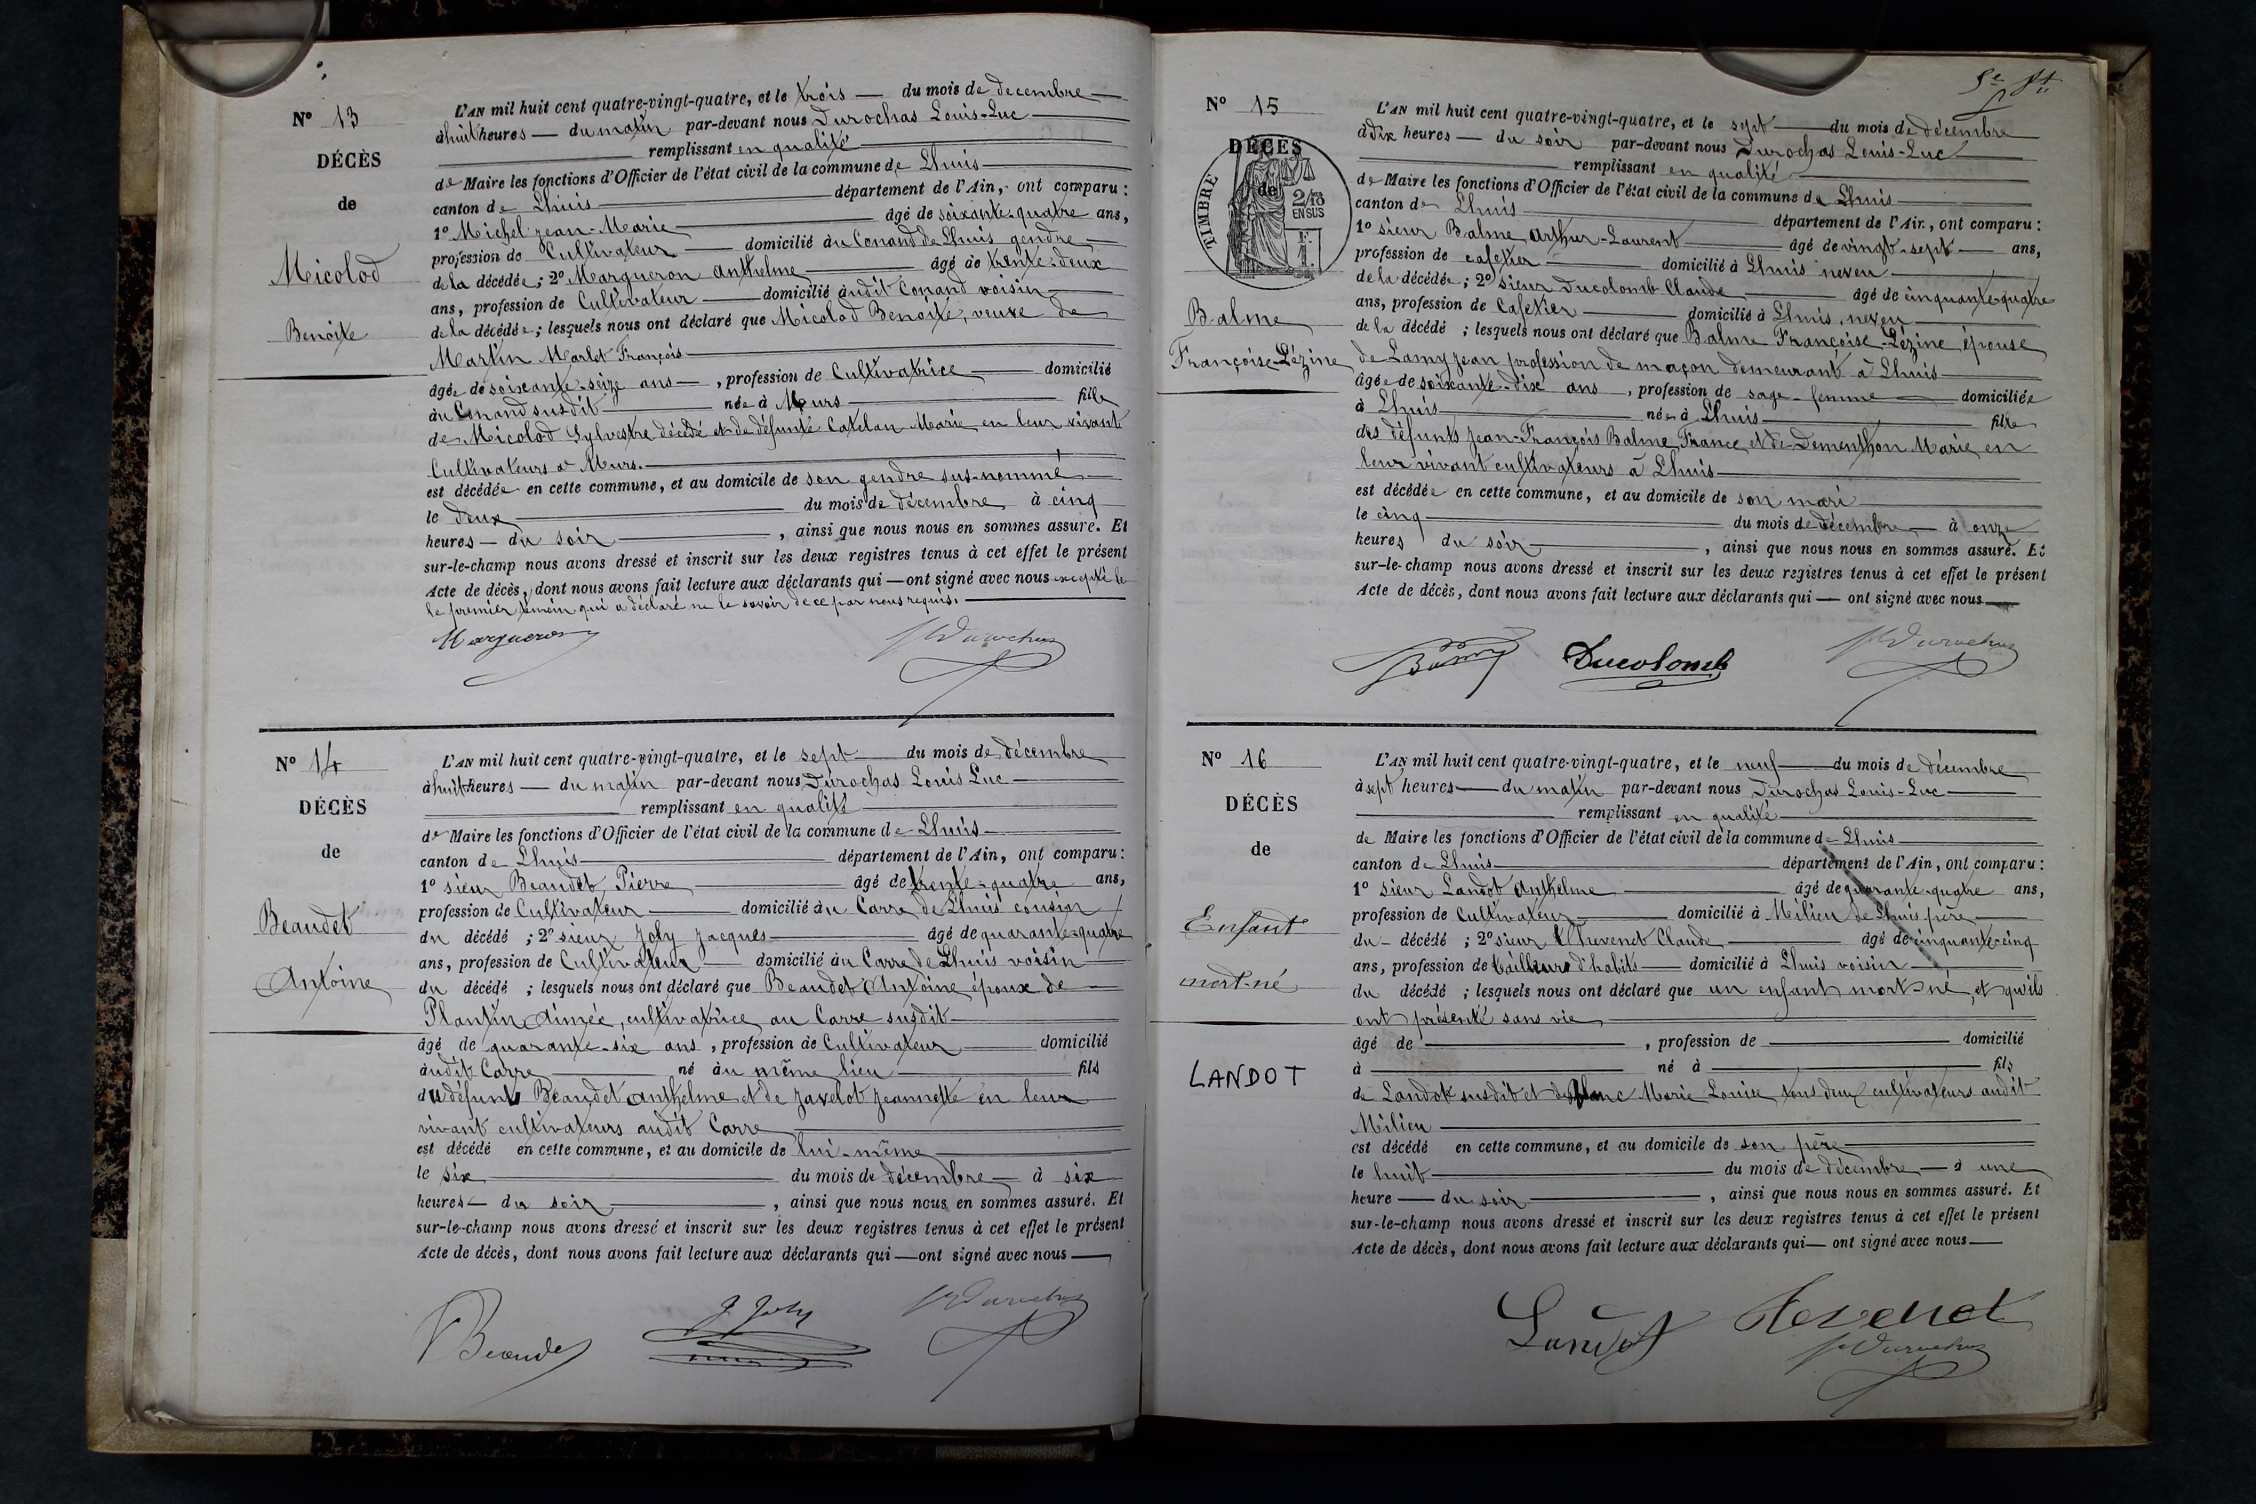 N° 13
DÉCÈS
de
Micolod
Benoite
L'AN mil huit cent quatre-vingt-quatre, et le trois du mois de decembre
à huit heures du matin par-devant nous Durochas Louis-Luc
remplissant en qualité
de Maire les fonctions d'Officier de l'état civil de la commune de Lhuis
canton de Lhuis département de l'Ain, ont comparu:
1° Michel Jean-Marie âgé de soixante-quatre ans,
profession de Cultivateur domicilié au Conand de Lhuis gendre
de la décédée; 2° Margueron Anthelme âgé de trente-deux
ans, profession de Cultivateur domicilié audit Conand voisin
de la décédée; lesquels nous ont déclaré que Micolod Benoite, veuve de
Martin Marlet François
âgée de soixante-seize ans, profession de Cultivatrice domicilié
au Conand susdit née à Murs fille
de Micolod Sylvestre décédé et de défunte Catelan Marie en leur vivant
Cultivateurs à Murs.
est décédée en cette commune, et au domicile de son gendre sus-nommé
le deux du mois de décembre à cinq
heures du soir, ainsi que nous nous en sommes assuré. Et
sur-le-champ nous avons dressé et inscrit sur les deux registres tenus à cet effet le présent
Acte de décès, dont nous avons fait lecture aux déclarants qui ont signé avec nous excepté le
le premier témoin qui a déclaré ne le savoir de ce par nous requis.
Margueron Durochas
N° 14
DÉCÈS
de
Beaudet
Antoine
L'AN mil huit cent quatre-vingt-quatre, et le sept du mois de décembre
à huit heures du matin par-devant nous Durochas Louis Luc
remplissant en qualité
de Maire les fonctions d'Officier de l'état civil de la commune de Lhuis
canton de Lhuis département de l'Ain, ont comparu:
1° sieur Beaudet, Pierre âgé de trente-quatre ans,
profession de Cultivateur domicilié au Carre de Lhuis cousin
du décédé; 2° sieur Joly Jacques âgé de quarante-quatre
ans, profession de Cultivateur domicilié au Carre de Lhuis voisin
du décédé; lesquels nous ont déclaré que Beaudet Antoine époux de
Plantin Aimée, cultivatrice au Carre susdit
âgé de quarante-six ans, profession de Cultivateur domicilié
audit Carre né au même lieu fils
du défunt Beaudet Anthelme et de Javelot Jeannette en leur
vivant cultivateurs audit Carre
est décédé en cette commune, et au domicile de lui-même
le six du mois de décembre à six
heures du soir, ainsi que nous nous en sommes assuré. Et
sur-le-champ nous avons dressé et inscrit sur les deux registres tenus à cet effet le présent
Acte de décès, dont nous avons fait lecture aux déclarants qui ont signé avec nous
Beaudet J Joly Durochas
N° 15
DÉCÈS
de
TIMBRE
2/10 EN SUS
Balme
Françoise-Lézine
L'AN mil huit cent quatre-vingt-quatre, et le sept du mois de décembre
à dix heures du soir par-devant nous Durochas Louis-Luc
remplissant en qualité
de Maire les fonctions d'Officier de l'état civil de la commune de Lhuis
canton de Lhuis département de l'Ain, ont comparu:
1° sieur Balme Arthur-Laurent âgé de vingt-sept ans,
profession de cafetier domicilié à Lhuis neveu
de la décédée; 2° sieur Ducolomb Claude âgé de cinquante-quatre
ans, profession de Cafetier domicilié à Lhuis, neveu
de la décédé; lesquels nous ont déclaré que Balme Françoise-Lézine épouse
de Lamy Jean profession de maçon demeurant à Lhuis
âgée de soixante-dix ans, profession de sage-femme domiciliée
à Lhuis née à Lhuis fille
des défunts Jean-François Balme France et de Dementhon Marie en
leur vivant cultivateurs à Lhuis
est décédée en cette commune, et au domicile de son mari
le cinq du mois de décembre à onze
heures du soir, ainsi que nous nous en sommes assuré. Et
sur-le-champ nous avons dressé et inscrit sur les deux registres tenus à cet effet le présent
Acte de décès, dont nous avons fait lecture aux déclarants qui ont signé avec nous
Ducolomb Durochas
N° 16
DÉCÈS
de
Enfant
mort-né
LANDOT
L'AN mil huit cent quatre-vingt-quatre, et le neuf du mois de décembre
à sept heures du matin par-devant nous Durochas Louis-Luc
remplissant en qualité
de Maire les fonctions d'Officier de l'état civil de la commune de Lhuis
canton de Lhuis département de l'Ain, ont comparu:
1° sieur Landot Anthelme âgé de quarante-quatre ans,
profession de Cultivateur domicilié à Milieu de Lhuis père
du décédé; 2° sieur Thevenet Claude âgé de cinquante-cinq
ans, profession de tailleur d'habits domicilié à Lhuis voisin
du décédé; lesquels nous ont déclaré que un enfant mort-né, et qu'ils
ont présenté sans vie
âgé de , profession de domicilié
à né à fils
de Landot susdit et de Blanc Marie Louise tous deux cultivateurs audit
Milieu
est décédé en cette commune, et au domicile de son père
le huit du mois de décembre à une
heure du soir, ainsi que nous nous en sommes assuré. Et
sur-le-champ nous avons dressé et inscrit sur les deux registres tenus à cet effet le présent
Acte de décès, dont nous avons fait lecture aux déclarants qui ont signé avec nous
Landot Tevenet
Durochas